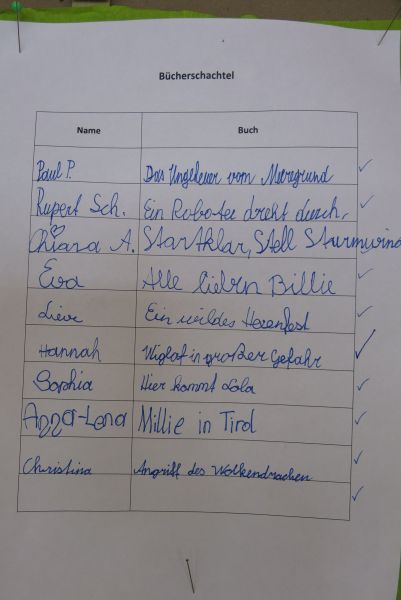 Bücherschachtel
Name Buch
Paul P. Das Ungeheuer vom Meeregrund
Rupert Sch. Ein Roboter dreht durch.
Chiara A. Startklar, Stell Sturmwind
Eva Alle lieben Billie
Ein wildes Hexenfest
Hannah Wiglaf in großer Gefahr
Sophia Hier kommt Lola
Anna-Lena Millie in Tirol
Christina Angriff des Wolkendrachen